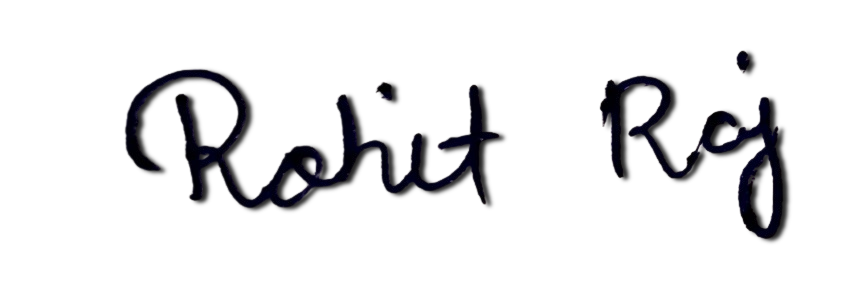 Rohit Raj